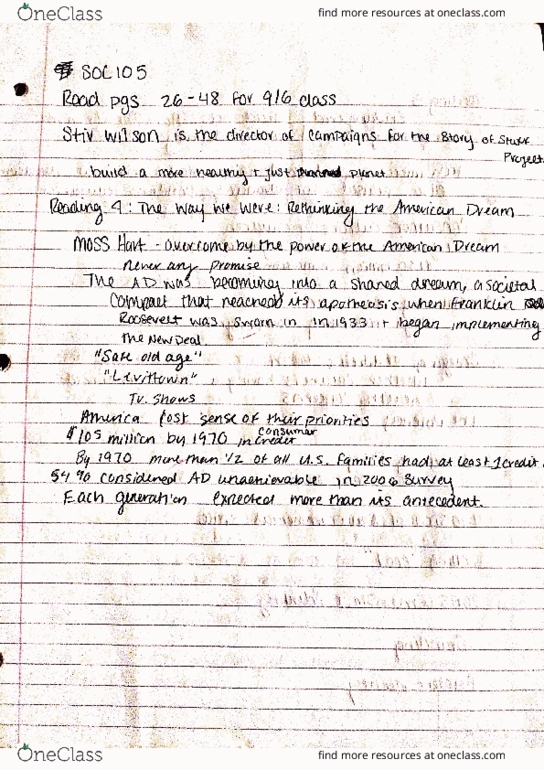 OneClass
find more resources at oneclass.com
SOC 105
Read pgs 26-48 for 9/6 class
Stiv Wilson is the director of campaigns for the Story of Stuff
Project
build a more healthy + just planet
Reading 4: The Way we Were: Rethinking the American Dream
Moss Hart - overcome by the power of the American Dream
never any promise
The AD was becoming into a shared dream, a societal
compact that reached its apotheosis when Franklin
Roosevelt was sworn in in 1933 + began implementing
The New Deal
"Safe old age"
"Levittown"
Tv. Shows
America lost sense of their priorities
$105 million by 1970 in consumer credit
By 1970 more than 1/2 of all U.S. families had at least 1 credit
54% considered AD unachievable in 2006 survey
Each generation expected more than its antecedent.
OneClass
find more resources at oneclass.com